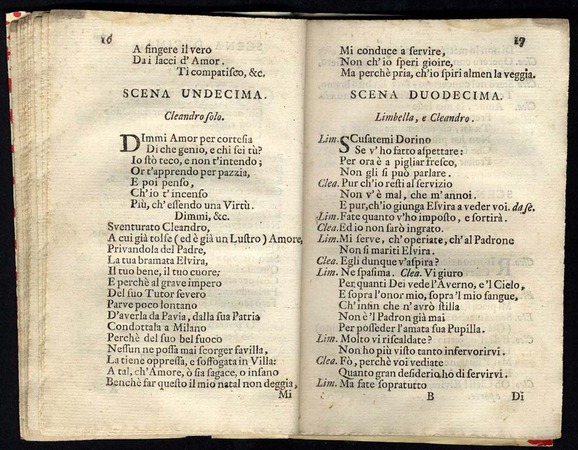 16
A fingere il vero
Da i lacci d'Amor.
Ti compatisco, &c.
SCENA UNDECIMA.
Cleandro solo.
DImmi Amor per cortesia
Di che genio, e chi sei tù?
Io stò teco, e non t'intendo;
Or t'apprendo per pazzia,
E poi penso,
Ch'io t'incenso
Più, ch'essendo una Virtù.
Dimmi, &c.
Sventurato Cleandro,
A cui già tolse (ed è già un Lustro) Amore,
Privandola del Padre,
La tua bramata Elvira,
Il tuo bene, il tuo cuore;
E perchè al grave impero
Del suo Tutor severo
Parve poco lontano
D'averla da Pavia, dalla sua Patria
Condottala a Milano
Perchè del suo bel fuoco
Nessun ne possa mai scorger favilla,
La tiene oppressa, e soffogata in Villa:
A tal, ch'Amore, ò sia sagace, o insano
Benchè far questo il mio natal non deggia,
Mi
17
Mi conduce a servire,
Non ch'io speri gioire,
Ma perchè pria, ch'io spiri almen la veggia.
SCENA DUODECIMA.
Limbella, e Cleandro.
Lim. SCusatemi Dorino
Se v'ho fatto aspettare:
Per ora è a pigliar fresco,
Non gli si può parlare.
Clea. Pur ch'io resti al servizio
Non v'è mal, che m'annoi.
E pur, ch'io giunga Elvira a veder voi. da sè.
Lim. Fate quanto v'ho imposto, e sortirà.
Clea. Ed io non sarò ingrato.
Lim. Mi serve, ch'operiate, ch'al Padrone
Non si mariti Elvira.
Clea. Egli dunque v'aspira?
Lim. Ne spasima. Clea. Vi giuro
Per quanti Dei vede l'Averno, e 'l Cielo,
E sopra l'onor mio, sopra 'l mio sangue,
Ch'infin che n'avrò stilla
Non è 'l Padron già mai
Per posseder l'amata sua Pupilla.
Lim. Molto vi riscaldate?
Non ho più visto tanto infervorirvi.
Clea. Fò, perchè voi vediate
Quanto gran desiderio ho di servirvi.
Lim. Ma fate sopratutto
B
Di